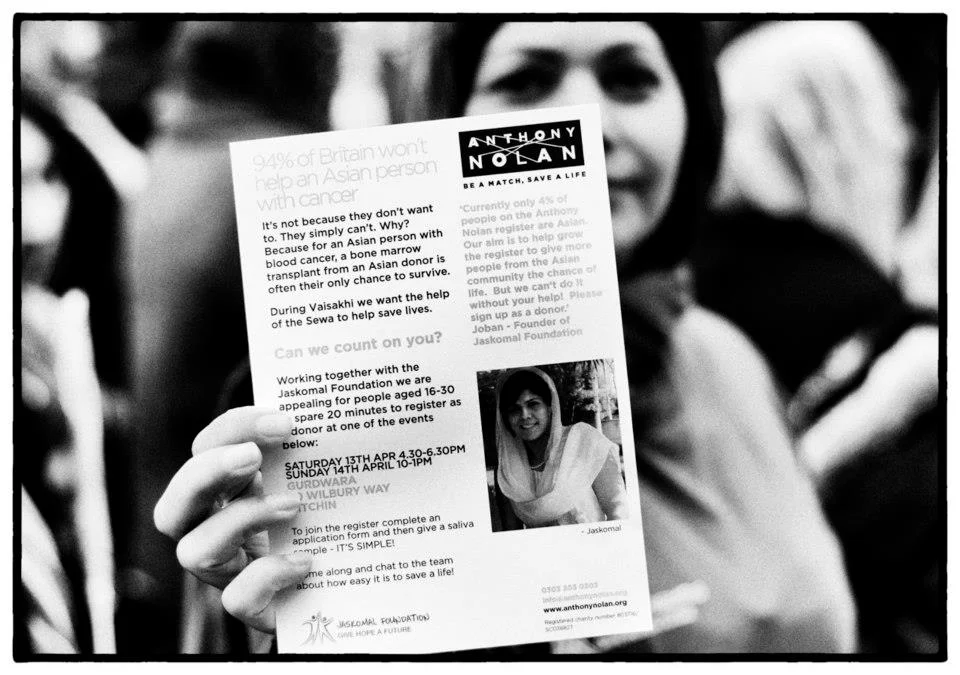 94% of Britain won't
help an Asian person
with cancer
It's not because they don't want
to. They simply can't. Why?
Because for an Asian person with
blood cancer, a bone marrow
transplant from an Asian donor is
often their only chance to survive.
During Vaisakhi we want the help
of the Sewa to help save lives.
Can we count on you?
Working together with the
Jaskomal Foundation we are
appealing for people aged 16-30
spare 20 minutes to register as
donor at one of the events
below:
SATURDAY 13TH APR 4.30-6.30PM
SUNDAY 14TH APRIL 10-1PM
GURDWARA
WILBURY WAY
ITCHIN
To join the register complete an
application form and then give a saliva
mple - IT'S SIMPLE!
me along and chat to the team
about how easy it is to save a life!
JASKOMAL FOUNDATION
GIVE HOPE A FUTURE
ANTHONY
NOLAN
BE A MATCH, SAVE A LIFE
'Currently only 4% of
people on the Anthony
Nolan register are Asian.
Our aim is to help grow
the register to give more
people from the Asian
community the chance of
life. But we can't do it
without your help! Please
sign up as a donor.'
Joban - Founder of
Jaskomal Foundation
- Jaskomal
0303 303 0303
info@anthonynolan.org
www.anthonynolan.org
Registered charity number 803716/
SC038827